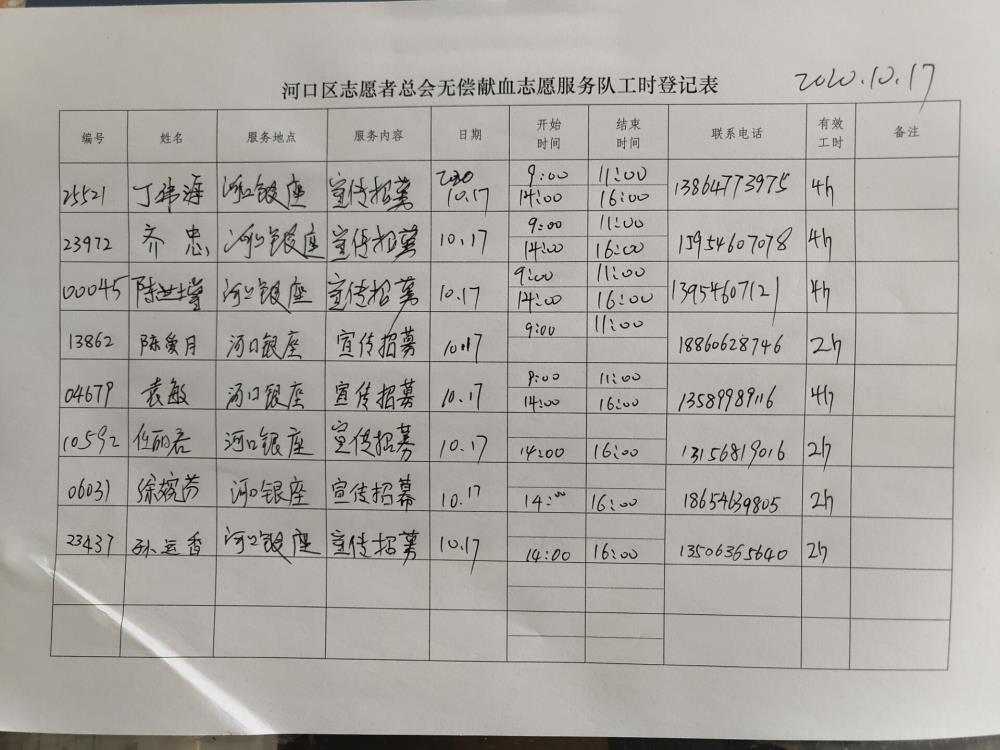 河口区志愿者总会无偿献血志愿服务队工时登记表 2020.10.17
编号 姓名 服务地点 服务内容 日期 开始时间 结束时间 联系电话 有效工时 备注
25521 丁伟海 河口银座 宣传招募 2020 10.17 9:00 11:00 14:00 16:00 13864773975 4h
23972 齐忠 河口银座 宣传招募 10.17 9:00 11:00 14:00 16:00 15954607078 4h
00045 陈 河口银座 宣传招募 10.17 9:00 11:00 14:00 16:00 13954607121 4h
13862 陈爱月 河口银座 宣传招募 10.17 9:00 11:00 18860628746 2h
04679 袁敏 河口银座 宣传招募 10.17 9:00 11:00 14:00 16:00 13589989116 4h
10592 任丽君 河口银座 宣传招募 10.17 14:00 16:00 13156819016 2h
06031 徐 芬 河口银座 宣传招募 10.17 14:00 16:00 18654639805 2h
23437 孙运香 河口银座 宣传招募 10.17 14:00 16:00 13506365640 2h